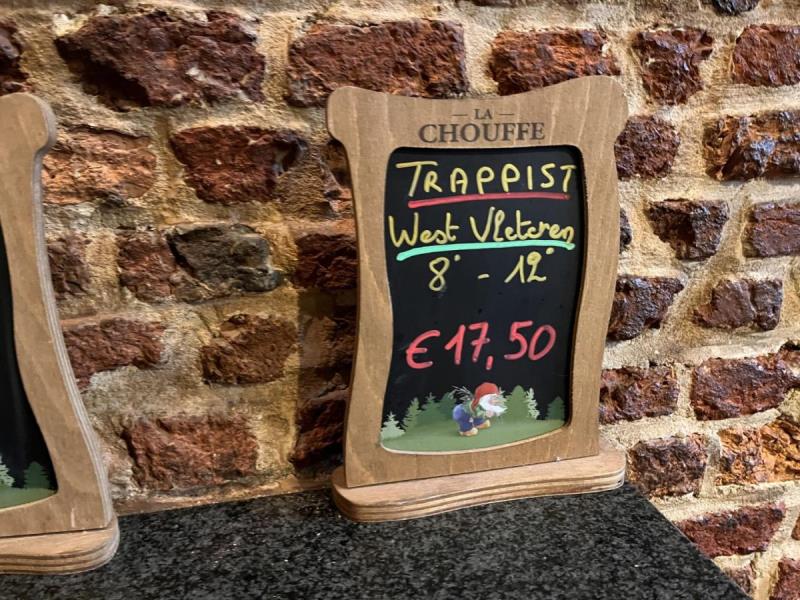 LA
CHOUFFE
TRAPPIST
West Vleteren
8° - 12°
€17,50